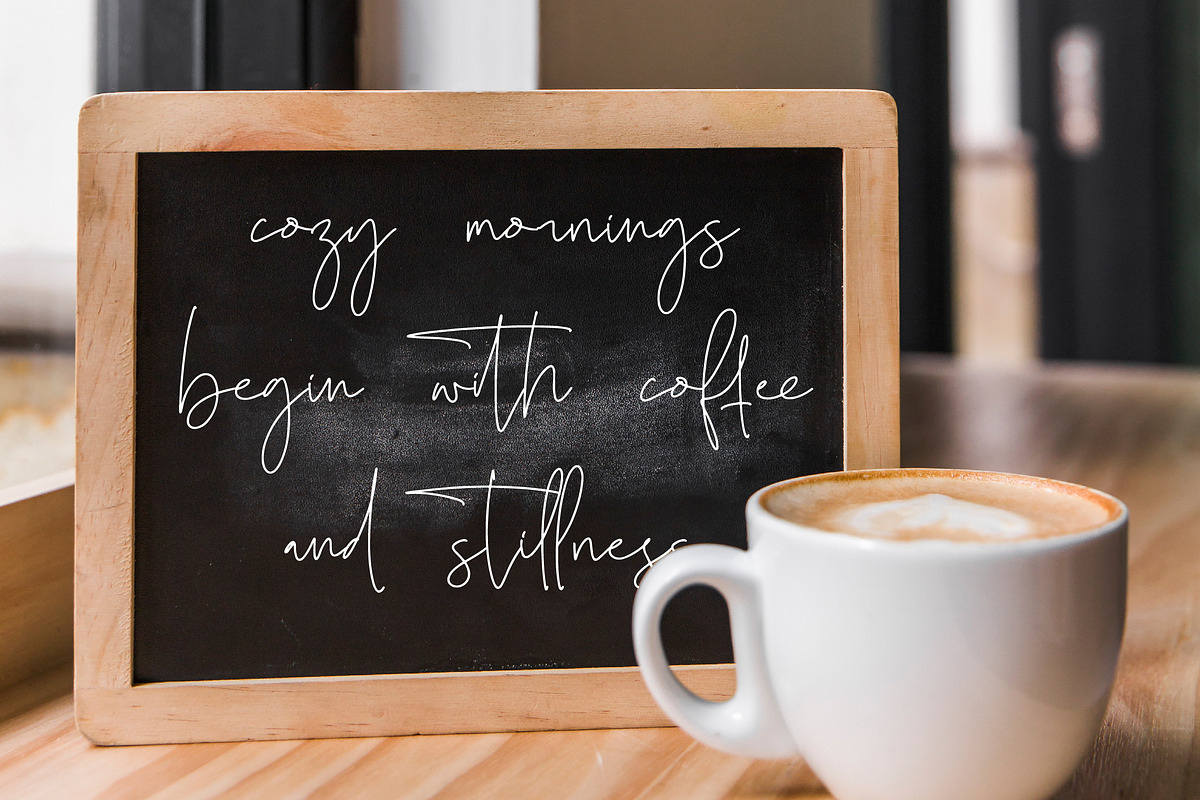 cozy mornings
begin with coffee
and stillness